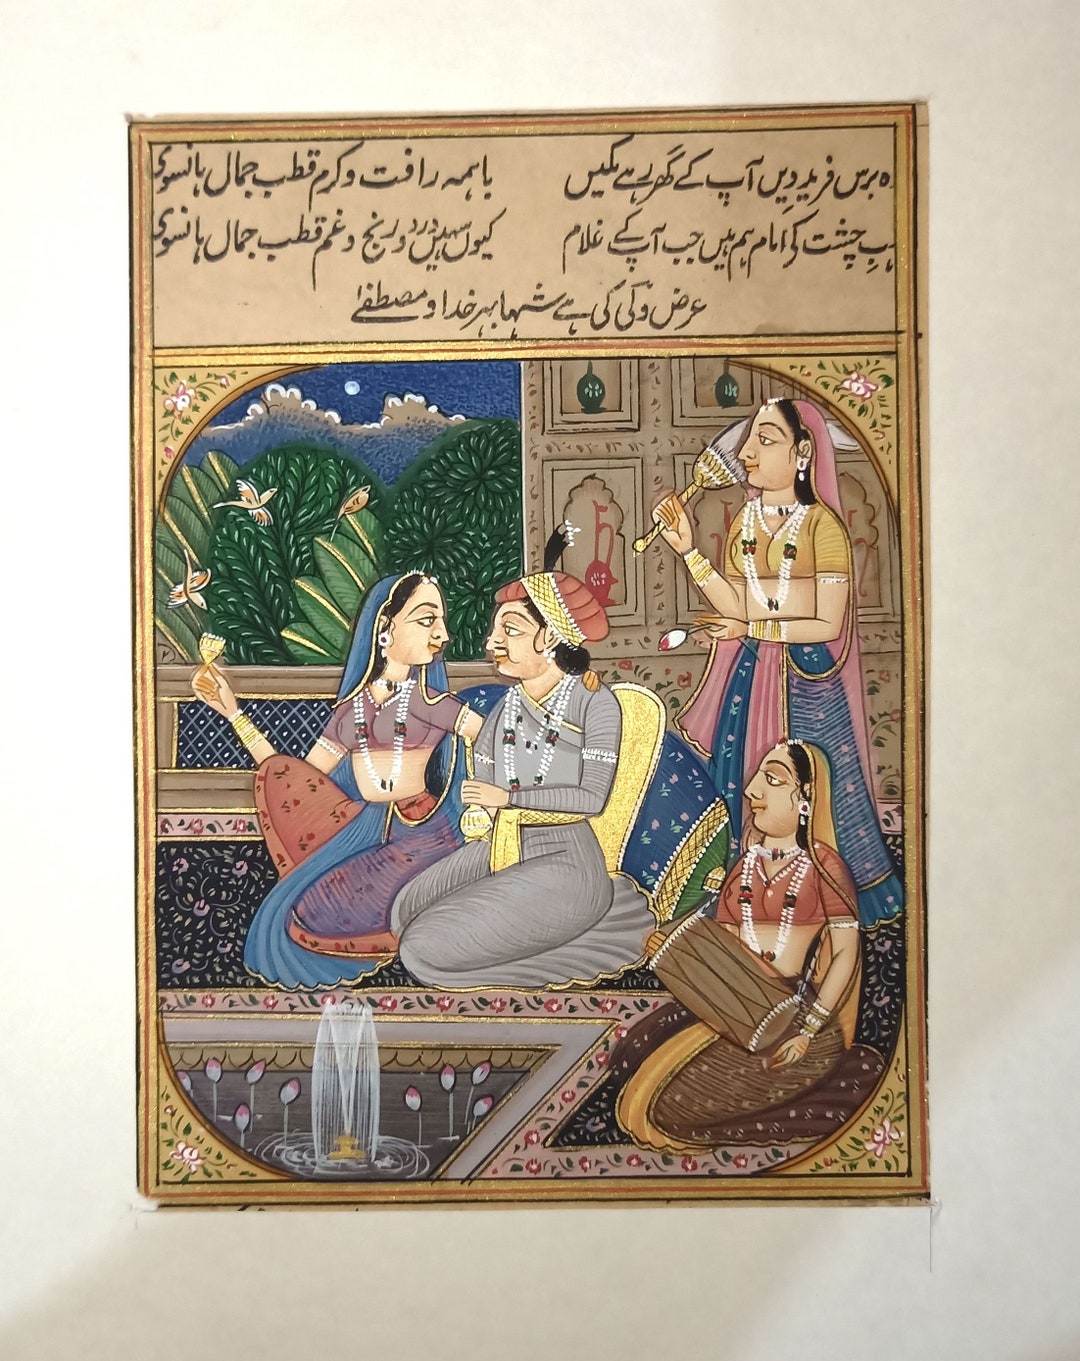 ہ برس فرید دیں آپ کے گھر رہے مکیں باہمہ رافت و کرم قطب جمال ہانسوی
بِ چشت کو امام ہم ہیں جب آپ کے غلام کیوں سہیں درد و رنج و غم قطب جمال ہانسوی
عرض وکی کی ہے شہا بہر خدا و مصطفےٰ